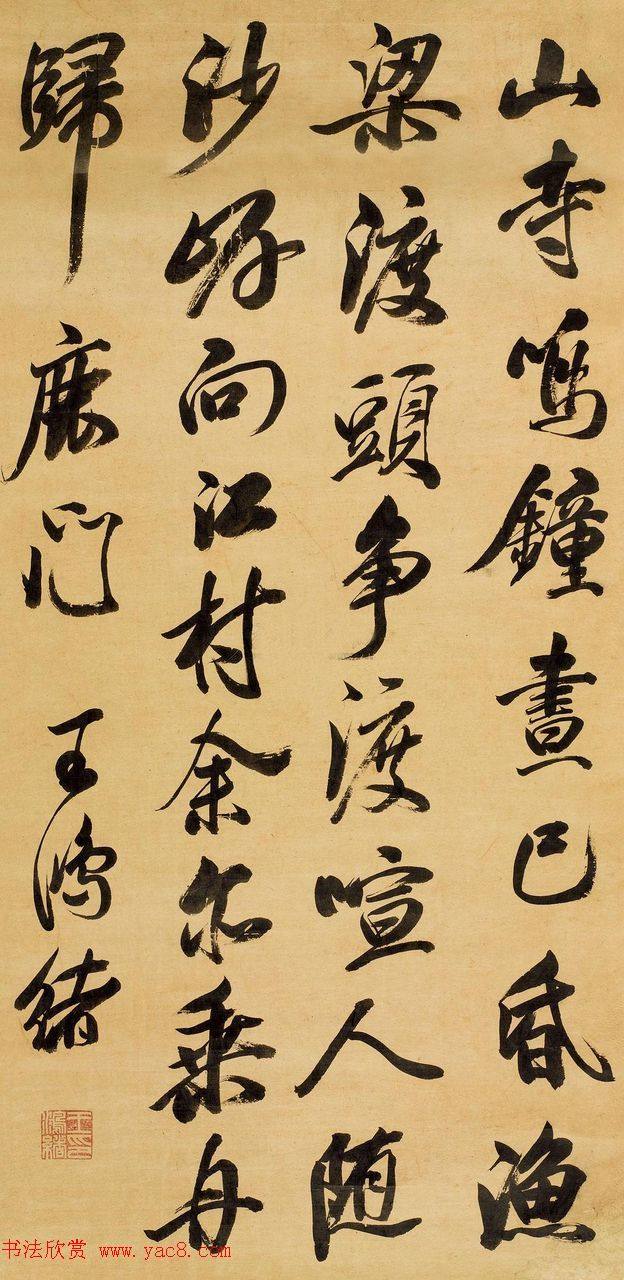 山寺鳴鐘晝已昏漁
梁渡頭争渡喧人随
沙岸向江村余亦乘舟
歸鹿門
王鴻緒
王印鴻緒
书法欣赏 www.yac8.com